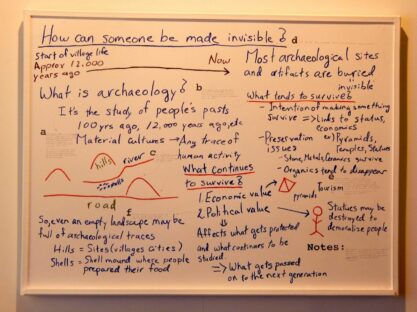 How can someone be made invisible?
d
Start of village life
Approx 12,000
years ago
Now
What is archaeology?
b
It's the study of people's pasts
100 yrs ago, 12,000 years ago, etc
a
Material cultures → Any trace of
human activity
c
hills
river
road
f
So, even an empty landscape may be
full of archaeological traces
Hills = Sites (villages cities)
Shells = Shell mound where people
prepared their food
Most archaeological sites
and artifacts are buried
invisible
What tends to survive?
- Intention of making something
survive => Links to status,
economics
- Preservation ex) Pyramids,
issues Temples, Statues
- Stone, Metals, Ceramics survive
- Organics tend to disappear
e
What continues
to survive?
1. Economic value →
Pyramids
Tourism
2. Political value →
Statues may be
destroyed to
demoralize people
Affects what gets protected
and what continues to be
studied
=> What gets passed
on to the next generation
Notes: